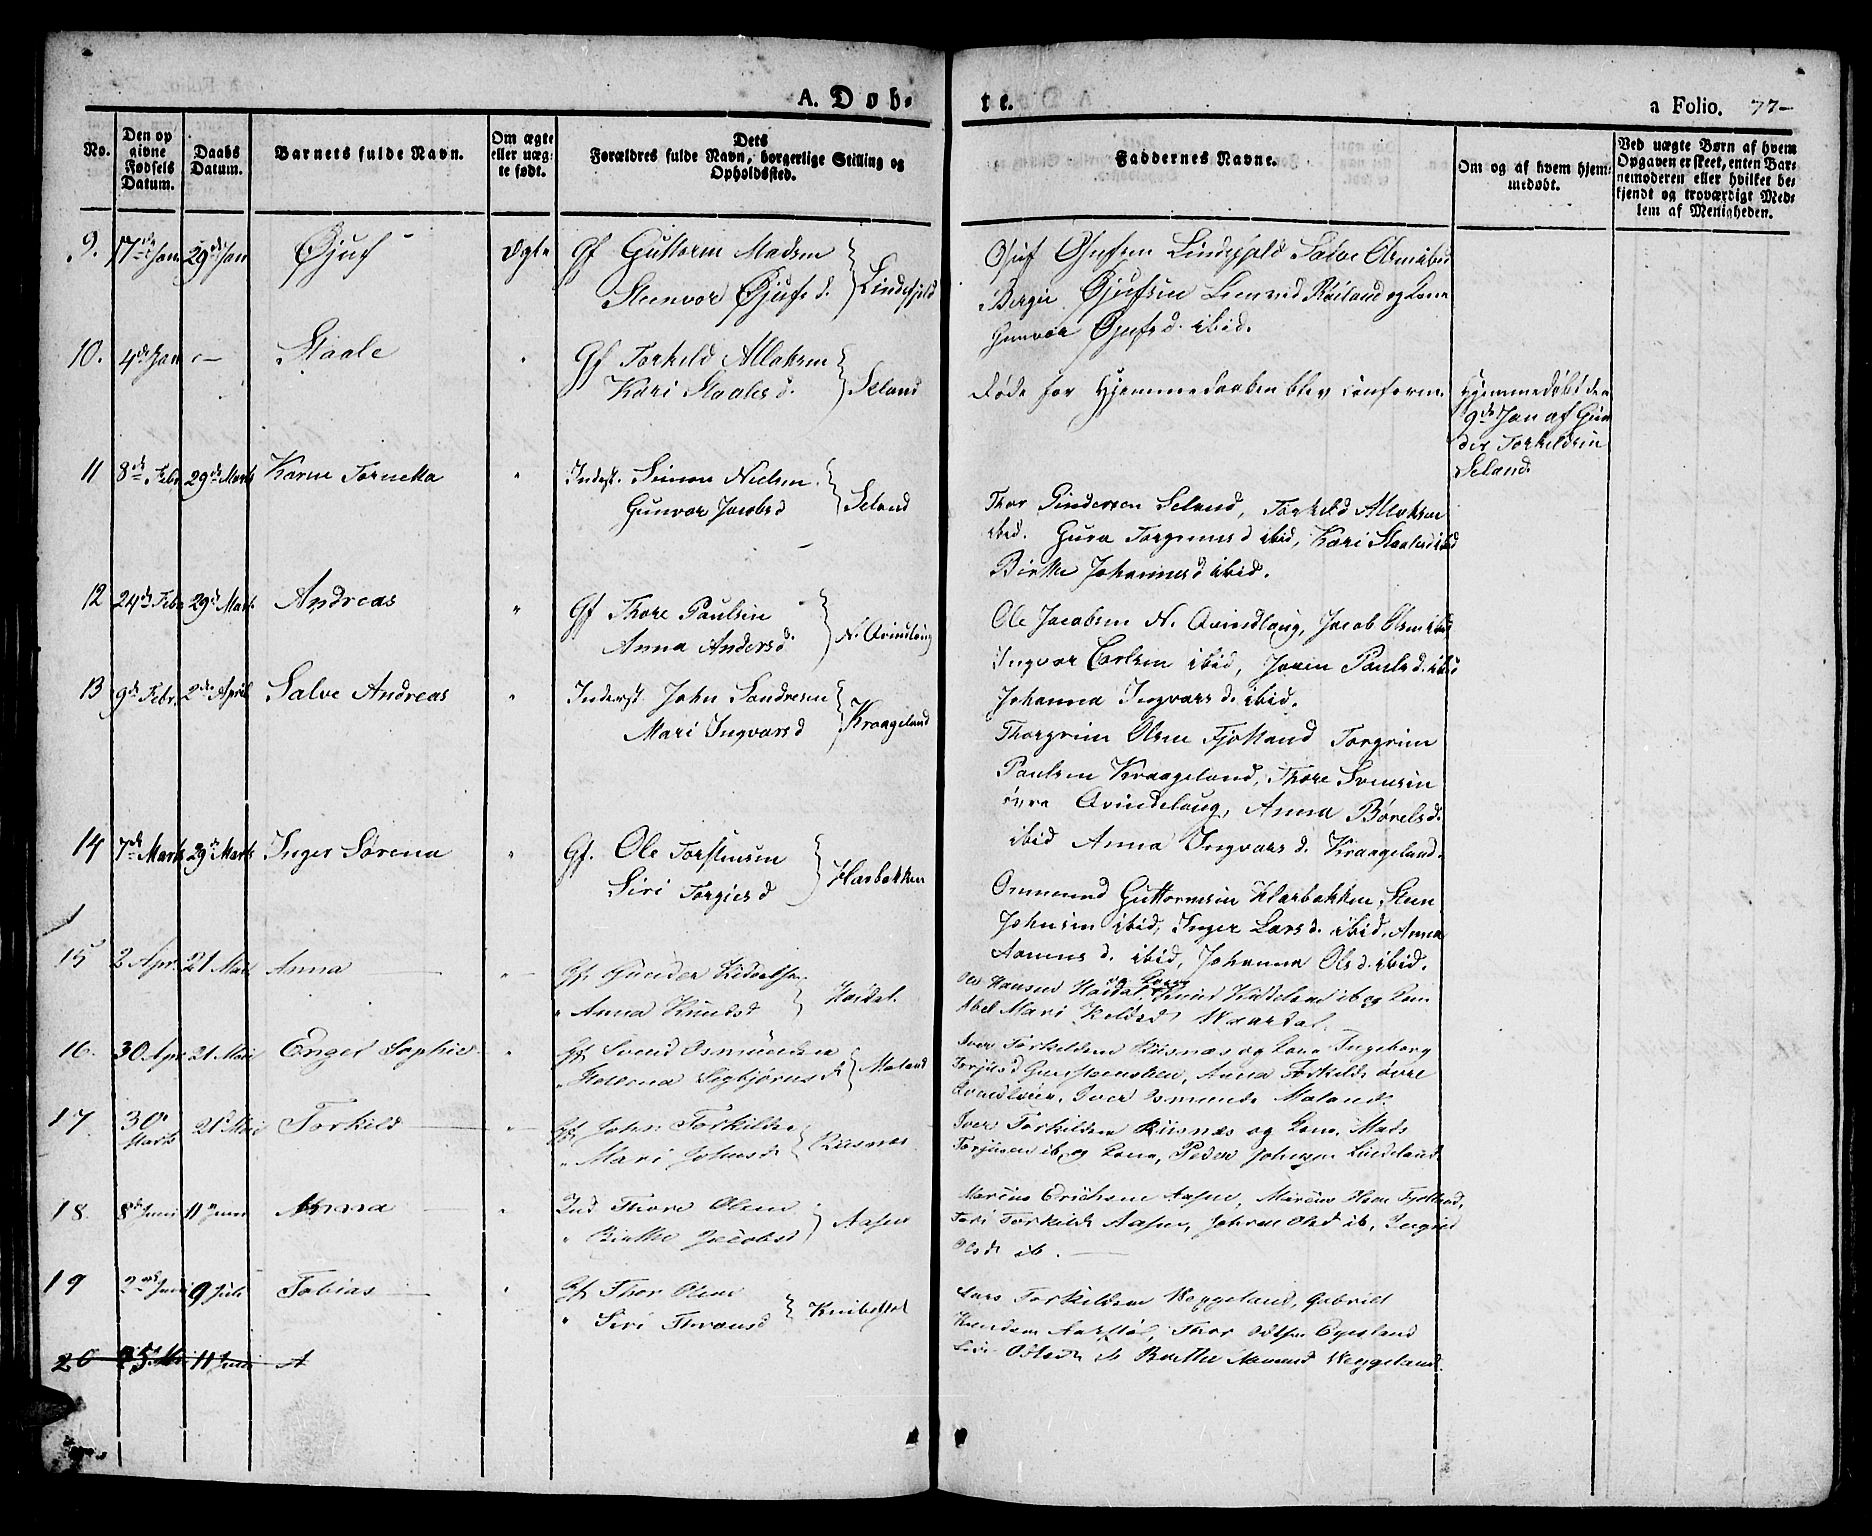 A. Døb-
te.
a Folio. 77-
No.
Den op
givne
Fødsels
Datum.
Daabs
Datum.
Barnets fulde Navn.
Om ægte
eller uæg-
te født.
Dets
Forældres fulde Navn, borgerlige Stilling og
Opholdssted.
Faddernes Navne.
Om og af hvem hjem-
medøbt.
Ved uægte Børn af hvem
Opgaven er skeet, enten Bar-
nemoderen eller hvilket be-
kjendt og troværdigt Med-
lem af Menigheden.
9. 17de Jan 29de Jan Øjuf Ægte Gf Guttorm Madsen
Steenvor Øjufsd. Lindefjeld
Øjuf Lindefjeld Salve Olsen ibid
Øjufsen Røiland og Kone
Gunvor Øjufsd. ibid.
10. 4de Jan - Staale " Gf Torkild Atlaksen
Kari Staalesd. Seland
Døde før Hjemmedaaben blev confirm.
Hjemmedøbt den
9de Jan af Gun
der Torkildsen
Seland
11 8de Febr 29de Marts Karen Tornetta " Inderst. Simon Nielsen
Gunvor Jacobsd Seland
Thor Gundersen Seland, Torkild Atlaksen
ibid. Guro Torgrimsd ibid, Kari Staalesd ibid
Birthe Johannesd ibid.
12 24de Febr 29de Mart Andreas " Gf Thore Paulsen
Anna Andersd. N. Qvindlaug
Ole Jacobsen N. Qvindlaug, Jacob Olsen ibid
Ingvor Carlsen ibid, Paulsd. ibid
Johanna Ingvarsd. ibid.
13 9de Febr. 2den April Salve Andreas " Inderst. John Sandresen
Mari Ingvarsd Kraageland
Thorgrim Olsen Fjotland Torgrim
Paulsen Kraageland, Thore Svensen
øvre Qvindelaug, Anna Børelsd.
ibid Anna Ingvarsd. Kraageland.
14 7de Marts 29de Marts Inger Sørena " Gf. Ole Torstensen
Siri Torgiesd Klarbakken
Ommund Guttormsen Klarbakken, Steen
Johnsen ibid, Inger Larsd. ibid, Anna
Aanensd. ibid, Johanna Olsd. ibid.
15 2 Apr. 21 Mai Anna - " Gf. Gunder
" Anna Knudsd Haidal.
Ole Hansen Haidal og Kone, Knud ib og Kone
Abel Mari
16. 30 Apr 21 Mai Enget Sophie " Gf Svend Osmundsen
Sigbjørnsd Moland
Iver Torkildsen Risnæs og Kone Ingeborg
Torjusd Anna Torkildsd øvre
Qvindlaug, Iver Osmunds Moland.
17. 30te Marts 21 Mai Torkild " Gf John Torkildsen
" Mari Johnsd Risnæs
Iver Torkildsen Risnæs og Kone, Mads
Torjusen ib og Kone, Peder Johnsen Lindeland
18. 8de Juni 11te Juni Anna - " Ind Thore Olsen
" Birthe Jacobsd Aasen
Marcus Erichsen Aasen, Marcus Olsen Fjotland,
Torkildsd Aasen, Johanne Olsd ib, Ingrid
Olsd ib. -
19 2den Juni 9 Juli Tobias - " Gf Thor Olsen
" Siri Thronsd Knibestøl
Lars Torkildsen Veggeland, Gabriel
Knudsen Aarstøl, Thor Egesland
Siri Olsd ib Berthe Aamund Veggeland.
20 11 Juni A